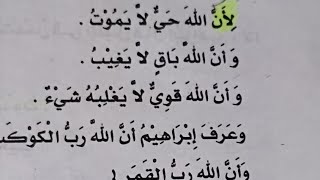 لِأَنَّ اللهَ حَيٌّ لاَّ يَمُوْتُ .
وَ أَنَّ اللهَ بَاقٍ لاَّ يَغِيْبُ .
وَ أَنَّ اللهَ قَوِيٌّ لاَّ يَغْلِبُهُ شَيْءٌ .
وَعَرَفَ إِبْرَاهِيْمُ أَنَّ اللهَ رَبُّ
وَأَنَّ اللهَ رَبُّ الْقَمَرِ